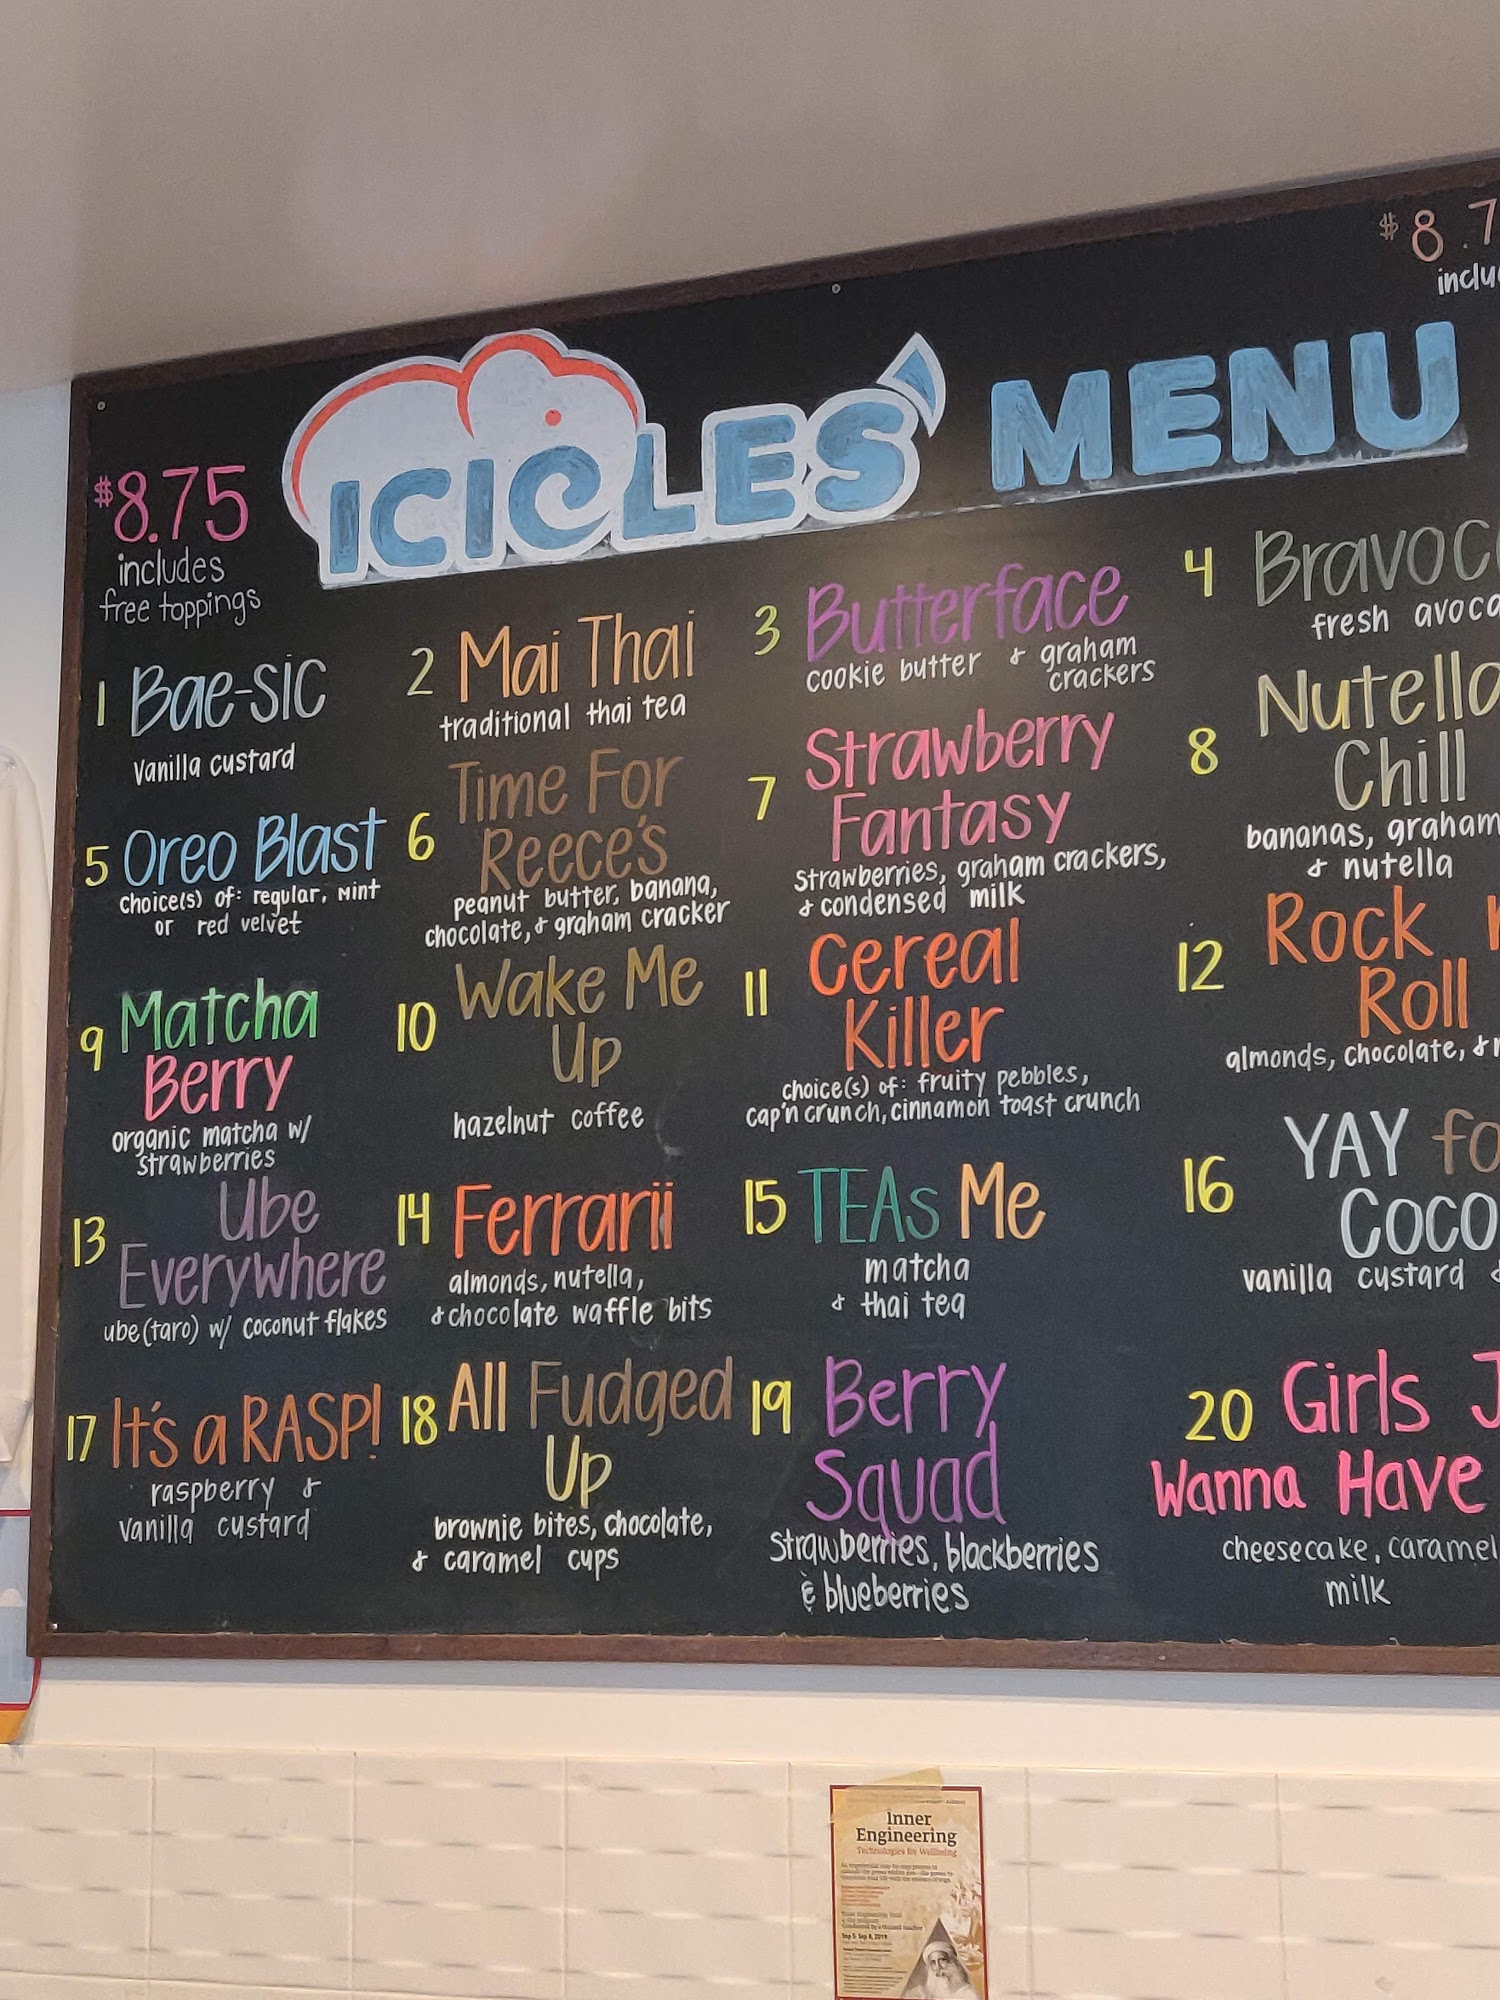 $8.7
ICICLES' MENU
$8.75
includes
free toppings
1 Bae-sic
vanilla custard
2 Mai Thai
traditional thai tea
3 Butterface
cookie butter & graham
crackers
4
fresh
5 Oreo Blast
choice(s) of: regular, mint
or red velvet
6 Time For
Reece's
peanut butter, banana,
chocolate, & graham cracker
7 Strawberry
Fantasy
strawberries, graham crackers,
& condensed milk
8 Nutella
Chill
bananas, graham
& nutella
9 Matcha
Berry
organic matcha w/
strawberries
10 Wake Me
Up
hazelnut coffee
11 Cereal
Killer
choice(s) of: fruity pebbles,
cap'n crunch, cinnamon toast crunch
12 Rock
Roll
almonds, chocolate, &
13 Ube
Everywhere
ube (taro) w/ coconut flakes
14 Ferrarii
almonds, nutella,
& chocolate waffle bits
15 TEAs Me
matcha
& thai tea
16 YAY fo
Coco
vanilla custard
17 It's a RASP!
raspberry &
vanilla custard
18 All Fudged
Up
brownie bites, chocolate,
& caramel cups
19 Berry
Squad
Strawberries, blackberries
& blueberries
20 Girls
Wanna Have
cheesecake, caramel
milk
Inner
Engineering
Technologies for Wellbeing
Sep 5- Sep 8, 2019